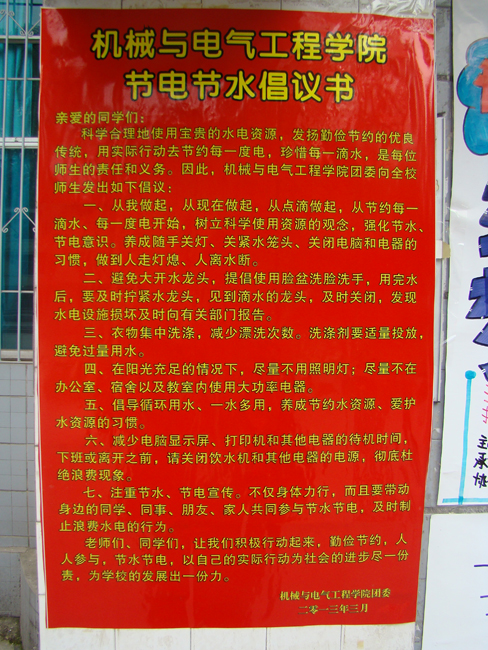 机械与电气工程学院
节电节水倡议书
亲爱的同学们：
科学合理地使用宝贵的水电资源，发扬勤俭节约的优良
传统，用实际行动去节约每一度电，珍惜每一滴水，是每位
师生的责任和义务。因此，机械与电气工程学院团委向全校
师生发出如下倡议：
一、从我做起，从现在做起，从点滴做起，从节约每一
滴水、每一度电开始，树立科学使用资源的观念，强化节水、
节电意识。养成随手关灯、关紧水笼头、关闭电脑和电器的
习惯，做到人走灯熄、人离水断。
二、避免大开水龙头，提倡使用脸盆洗脸洗手，用完水
后，要及时拧紧水龙头，见到滴水的龙头，及时关闭，发现
水电设施损坏及时向有关部门报告。
三、衣物集中洗涤，减少漂洗次数。洗涤剂要适量投放，
避免过量用水。
四、在阳光充足的情况下，尽量不用照明灯；尽量不在
办公室、宿舍以及教室内使用大功率电器。
五、倡导循环用水、一水多用，养成节约水资源、爱护
水资源的习惯。
六、减少电脑显示屏、打印机和其他电器的待机时间，
下班或离开之前，请关闭饮水机和其他电器的电源，彻底杜
绝浪费现象。
七、注重节水、节电宣传。不仅身体力行，而且要带动
身边的同学、同事、朋友、家人共同参与节水节电，及时制
止浪费水电的行为。
老师们、同学们，让我们积极行动起来，勤俭节约，人
人参与，节水节电，以自己的实际行动为社会的进步尽一份
责，为学校的发展出一份力。
机械与电气工程学院团委
二零一三年三月
主
承